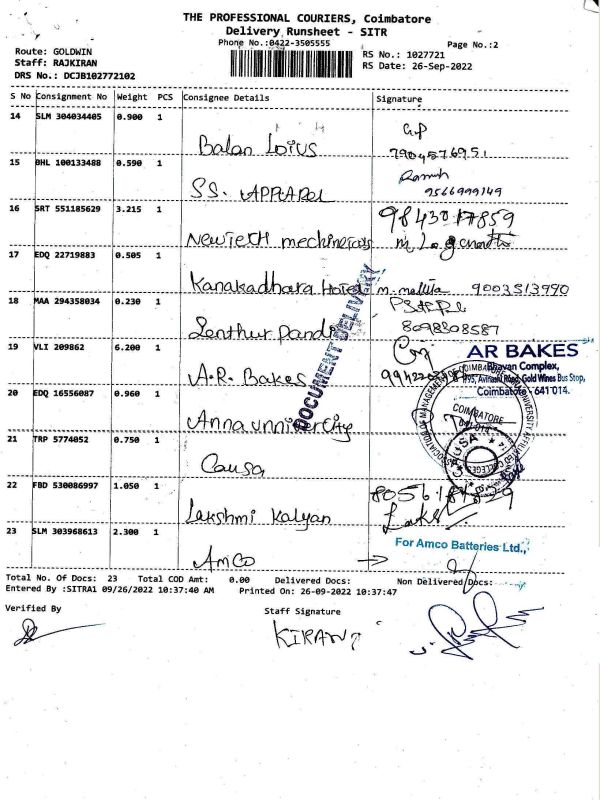 THE PROFESSIONAL COURIERS, Coimbatore
Delivery Runsheet - SITR
Phone No.:0422-3505555
Page No.:2
Route: GOLDWIN
Staff: RAJKIRAN
DRS No.: DCJB102772102
RS No.: 1027721
RS Date: 26-Sep-2022
S No Consignment No Weight PCS Consignee Details Signature
14 SLM 304034405 0.900 1
Balan Loius 7904576951
15 BHL 100133488 0.590 1
SS. APPAREL 9566999149
16 SRT 551185629 3.215 1 9843017859
Newtech mechineicals
17 EDQ 22719883 0.505 1
Kanakadhara Hotel 9003513990
18 MAA 294358034 0.230 1
Senthur Pandi 8098308587
DOCUMENT DELIVERY
19 VLI 209862 6.200 1
AR BAKES
Bhavan Complex,
Avinashi Road, Gold Wines Bus Stop,
Coimbatore - 641 014.
A.R. Bakes
20 EDQ 16556087 0.960 1
Anna unnivercity
COIMBATORE
641-014
21 TRP 5774052 0.750 1
Causa
CAUSA
22 FBD 530086997 1.050 1
Lakshmi Kalyan
23 SLM 303968613 2.300 1
For Amco Batteries Ltd.,
AMCO
Total No. Of Docs: 23 Total COD Amt: 0.00 Delivered Docs: Non Delivered Docs:
Entered By :SITRA1 09/26/2022 10:37:40 AM Printed On: 26-09-2022 10:37:47
Verified By
Staff Signature
KIRAN